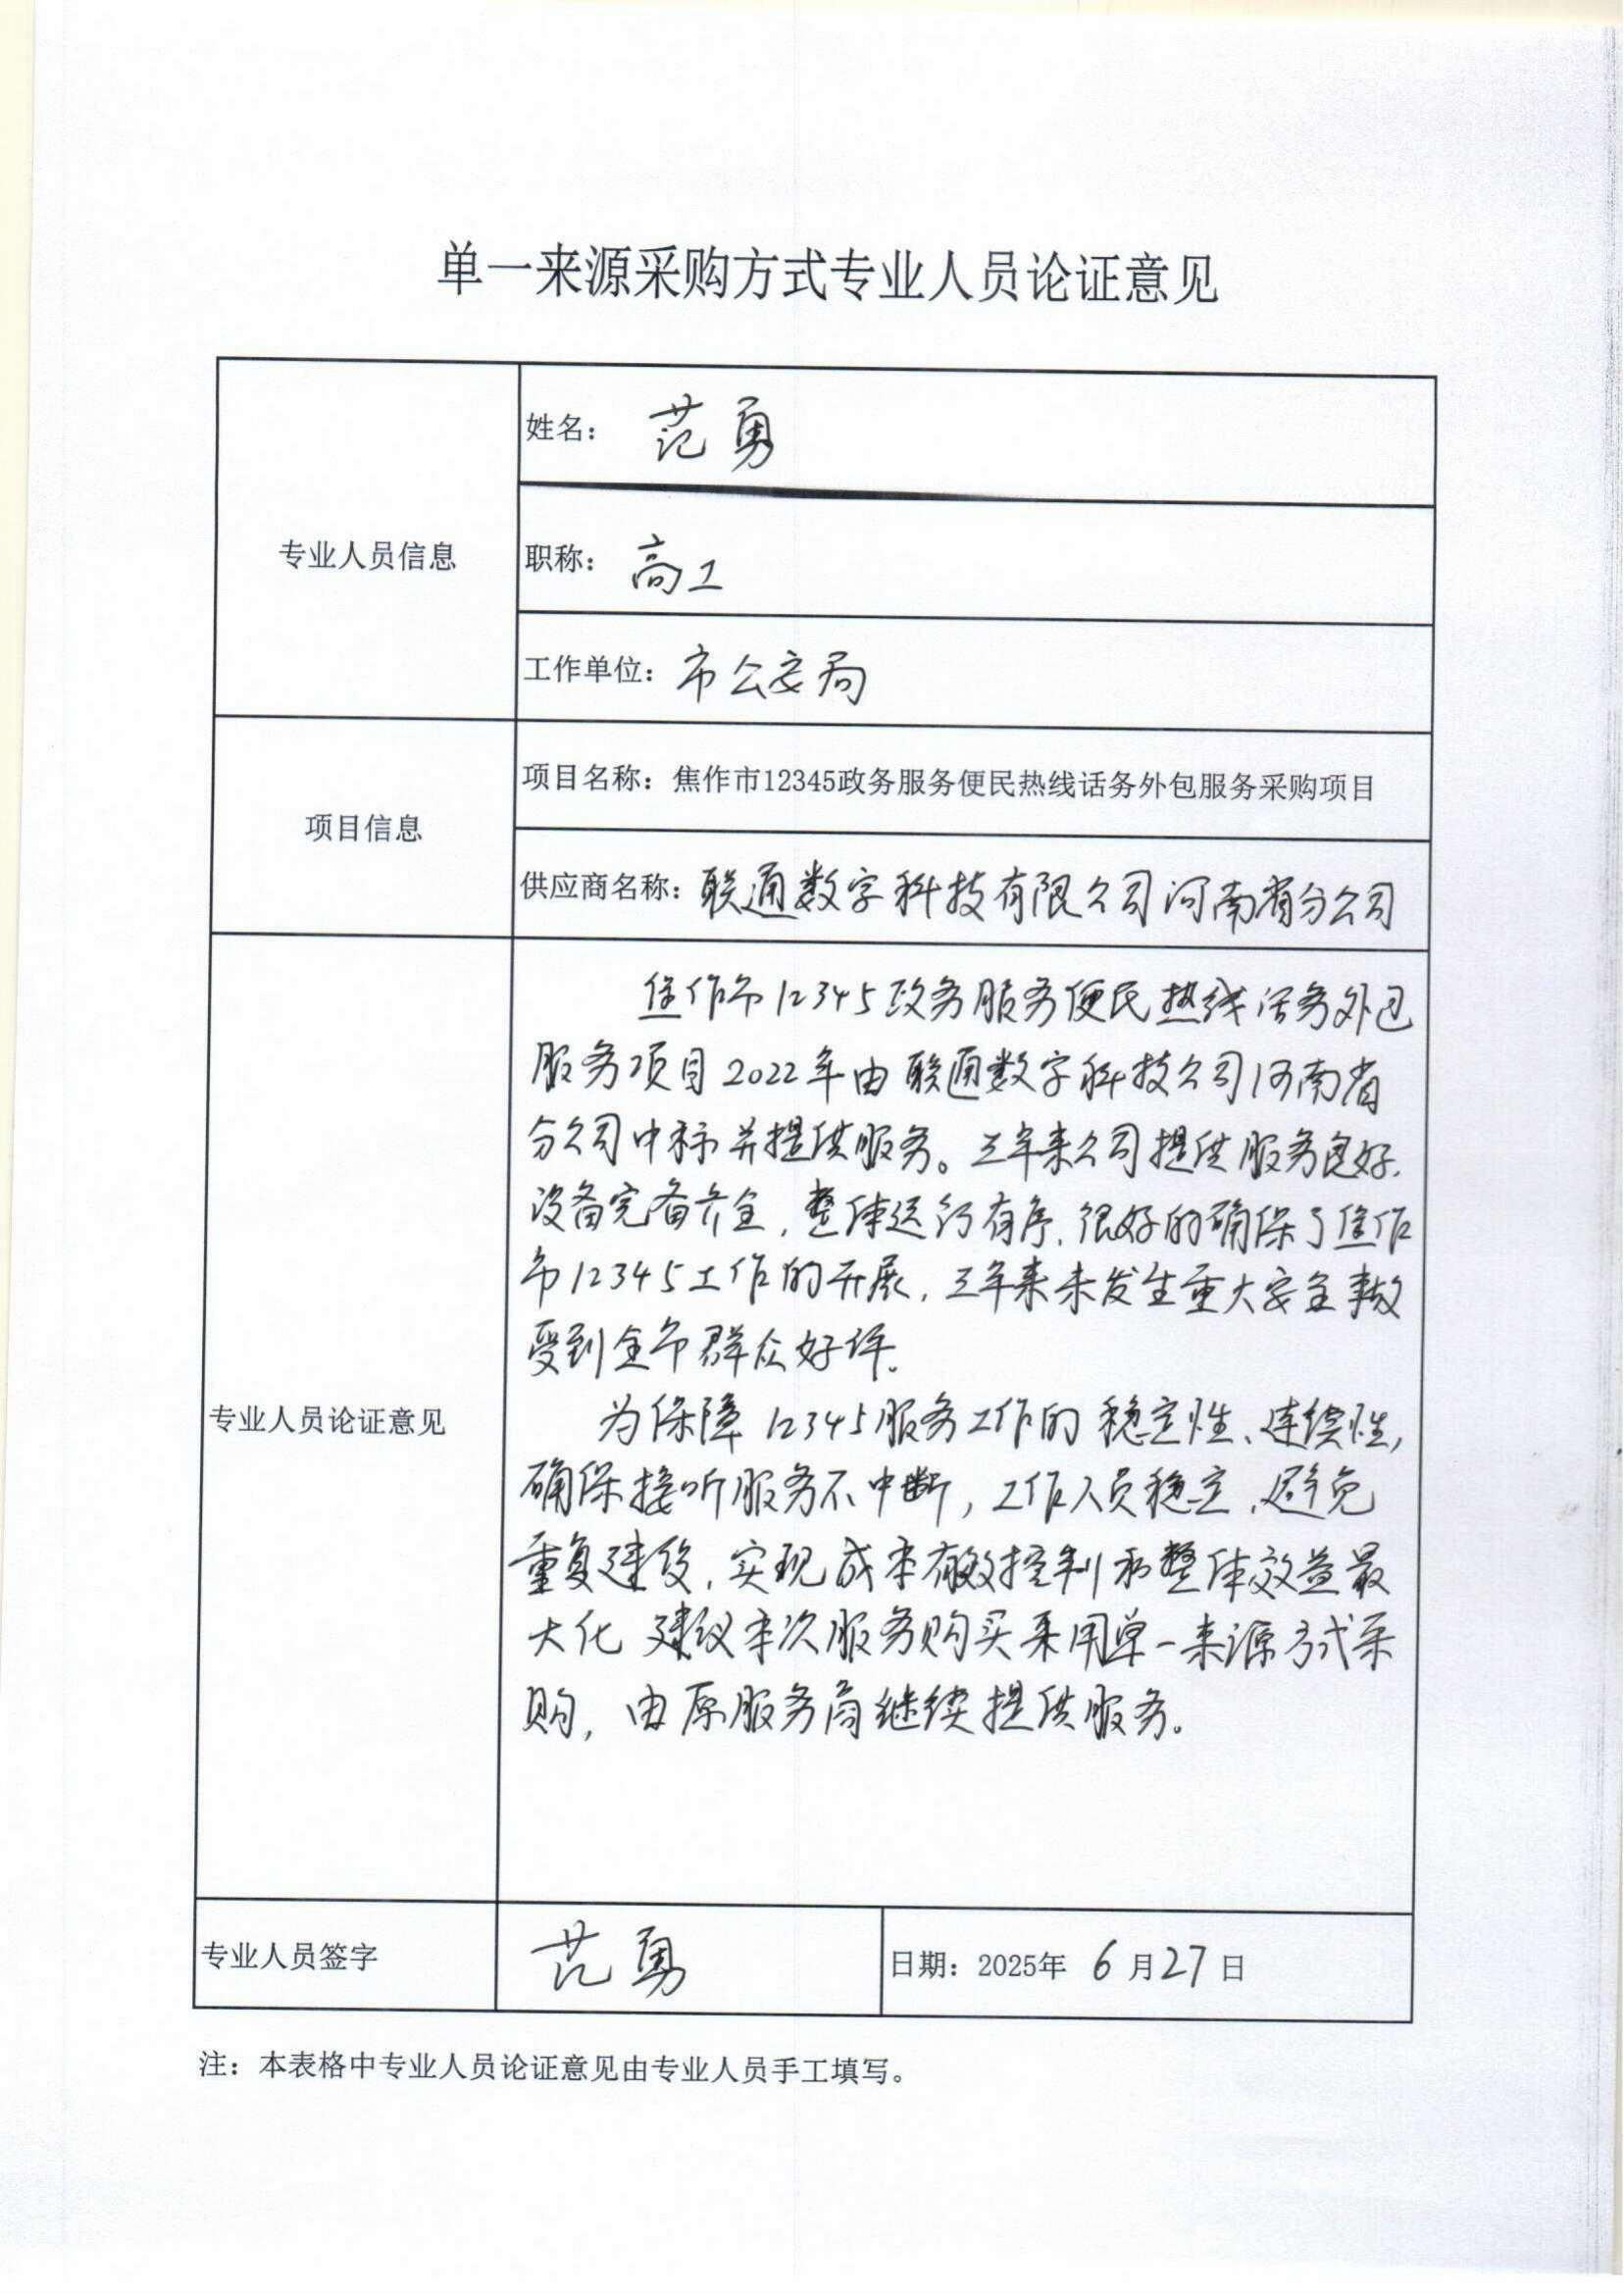 单一来源采购方式专业人员论证意见
专业人员信息
姓名：范勇
职称：高工
工作单位：市公安局
项目信息
项目名称：焦作市12345政务服务便民热线话务外包服务采购项目
供应商名称：联通数字科技有限公司河南省分公司
专业人员论证意见
焦作市12345政务服务便民热线话务外包
服务项目2022年由联通数字科技公司河南省
分公司中标并提供服务。三年来公司提供服务良好，
设备完备齐全，整体运行有序，很好的确保了焦作
市12345工作的开展，三年来未发生重大安全事故
受到全市群众好评。
为保障12345服务工作的稳定性、连续性，
确保接听服务不中断，工作人员稳定，避免
重复建设，实现成本有效控制和整体效益最
大化 建议本次服务购买采用单一来源方式采
购，由原服务商继续提供服务。
专业人员签字
范勇
日期：2025年 6月27日
注：本表格中专业人员论证意见由专业人员手工填写。